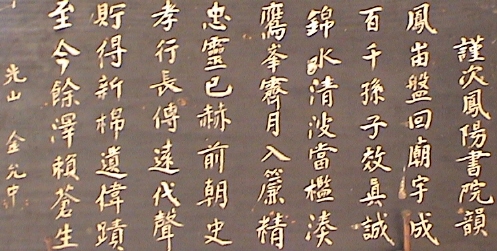 謹次鳳陽書院韻
鳳峀盤回廟宇成
百千孫子效真誠
錦水清波當檻湊
鷹峯霽月入簾精
忠靈已赫前朝史
孝行長傳遠代聲
貯得新棉遺偉蹟
至今餘澤賴蒼生
光山 金允中